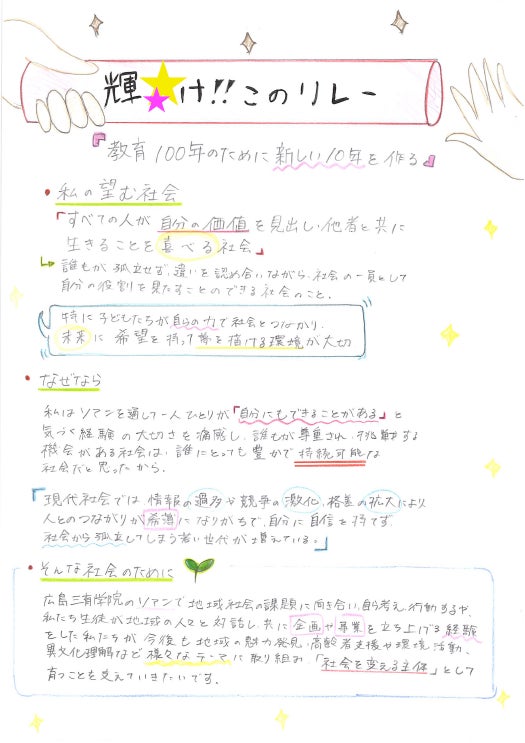 輝け!!このリレー
『教育100年のために新しい10年を作る』
・私の望む社会
「すべての人が自分の価値を見出し、他者と共に
生きることを喜べる社会」
誰もが孤立せず、違いを認め合いながら、社会の一員として
自分の役割を果たすことのできる社会のこと。
特に子どもたちが自らの力で社会とつながり、
未来に希望を持って夢を描ける環境が大切
・なぜなら
私はソアンを通して一人ひとりが「自分にもできることがある」と
気づく経験の大切さを痛感し、誰もが尊重され、挑戦する
機会がある社会は、誰にとっても豊かで持続可能な
社会だと思ったから。
「現代社会では情報の過多や競争の激化、格差の拡大により
人とのつながりが希薄になりがちで、自分に自信を持てず、
社会から孤立してしまう若い世代が増えている。」
・そんな社会のために
広島三育学院のソアンで地域社会の課題に向き合い、自ら考え、行動する中、
私たち生徒が地域の人々と対話し、共に企画や事業を立ち上げる経験
をした私たちが今後も地域の魅力発見、高齢者支援や環境活動、
異文化理解など様々なテーマに取り組み、「社会を変える主体」として
育つことを支えていきたいです。